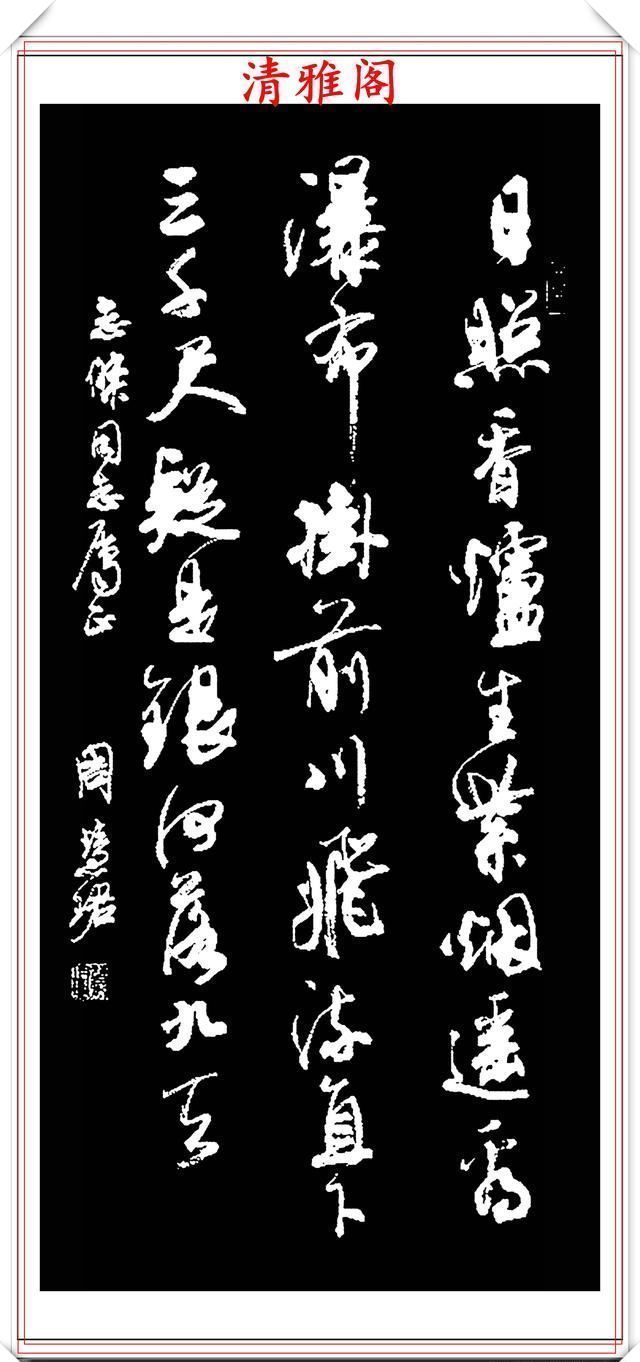 清雅阁
日照香爐生紫烟遥看
瀑布掛前川飛流直下
三千尺疑是銀河落九天
志傑同志属正
周慧珺